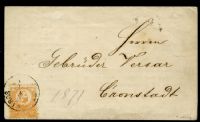 Herrn
Gebrüder Versar
Cronstadt
1871